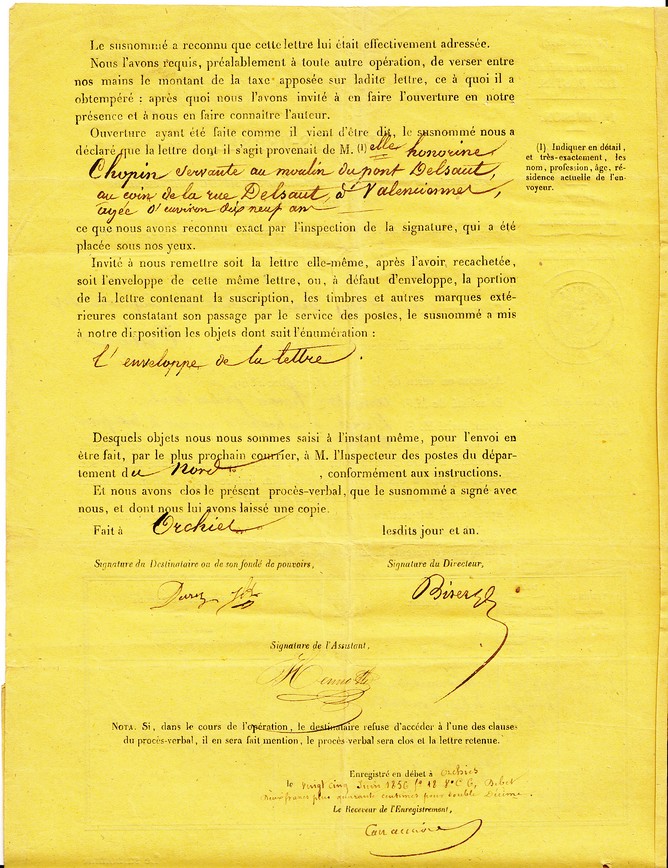 Le susnommé a reconnu que cette lettre lui était effectivement adressée.
Nous l'avons requis, préalablement à toute autre opération, de verser entre
nos mains le montant de la taxe apposée sur ladite lettre, ce à quoi il a
obtempéré : après quoi nous l'avons invité à en faire l'ouverture en notre
présence et à nous en faire connaître l'auteur.
Ouverture ayant été faite comme il vient d'être dit, le susnommé nous a
déclaré que la lettre dont il s'agit provenait de M. (1) elle honorine
Chopin servante au moulin du pont Delsaut,
au coin de la rue Delsaut, à Valenciennes,
agée d'environ dix neuf ans
ce que nous avons reconnu exact par l'inspection de la signature, qui a été
placée sous nos yeux.
Invité à nous remettre soit la lettre elle-même, après l'avoir recachetée,
soit l'enveloppe de cette même lettre, ou, à défaut d'enveloppe, la portion
de la lettre contenant la suscription, les timbres et autres marques exté-
rieures constatant son passage par le service des postes, le susnommé a mis
à notre disposition les objets dont suit l'énumération :
l'enveloppe de la lettre.
(1) Indiquer en détail,
et très-exactement, les
nom, profession, âge, ré-
sidence actuelle de l'en-
voyeur.
Desquels objets nous nous sommes saisi à l'instant même, pour l'envoi en
être fait, par le plus prochain courrier, à M. l'Inspecteur des postes du dépar-
tement du Nord, conformément aux instructions.
Et nous avons clos le présent procès-verbal, que le susnommé a signé avec
nous, et dont nous lui avons laissé une copie.
Fait à Orchies lesdits jour et an.
Signature du Destinataire ou de son fondé de pouvoirs,
Signature du Directeur,
Signature de l'Assistant,
NOTA. Si, dans le cours de l'opération, le destinataire refuse d'accéder à l'une des clauses
du procès-verbal, il en sera fait mention, le procès-verbal sera clos et la lettre retenue.
Enregistré en débet à Orchies
le vingt cinq Juin 1856 fo 18 Vo C 6, Débet
deux francs plus quarante centimes pour double Décime.
Le Receveur de l'Enregistrement,